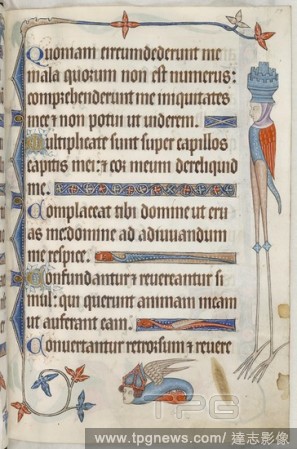 Quoniam circumdederunt me
mala quorum non est numerus:
comprehenderunt me iniquitates
mee & non potui ut viderem.
Multiplicate sunt super capillos
capitis mei: & cor meum dereliquid
me.
Complaceat tibi domine ut eru
as me domine ad adiuvandum
me respice.
Confundantur & revereantur si
mul: qui querunt animam meam
ut auferant eam.
Convertantur retrorsum & revere
TPG
www.tpgnews.com / 達志影像